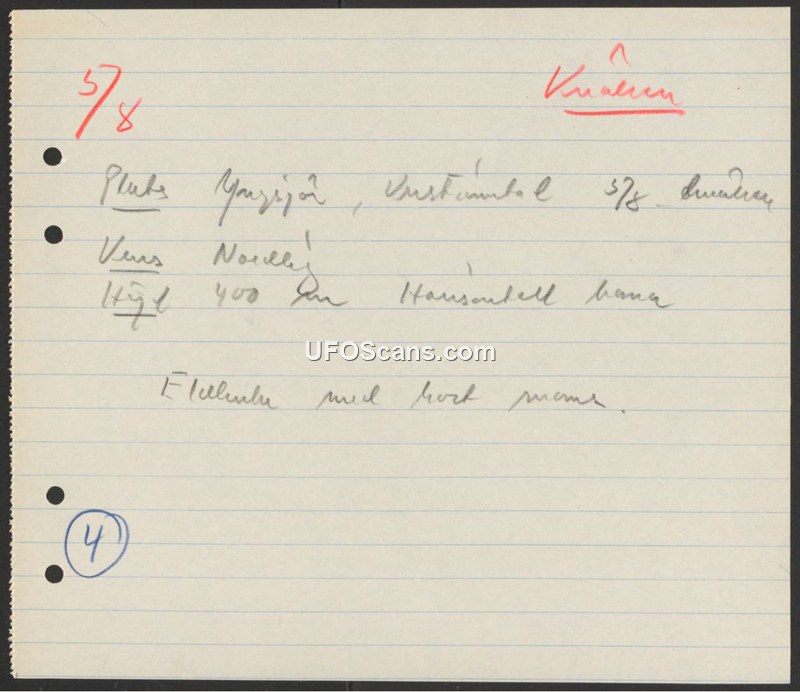 5/8
Kvällen
Plats Yngsjö, 5/8 kvällen
Kurs Nordlig
Höjd 400 m Horisontell bana
UFOScans.com
med kort svans.
4